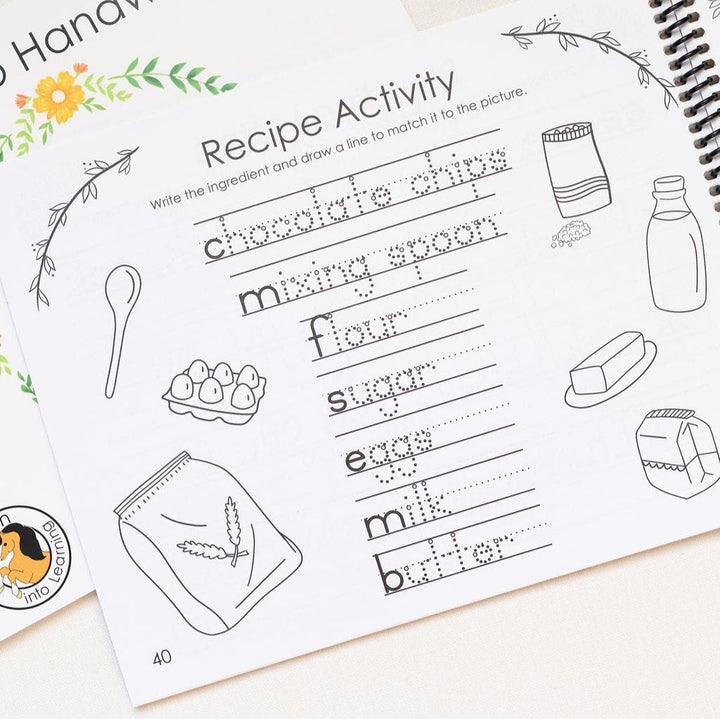 o Handw
Recipe Activity
Write the ingredient and draw a line to match it to the picture.
chocolate chips
mixing spoon
flour
sugar
eggs
milk
butter
40
into Learning